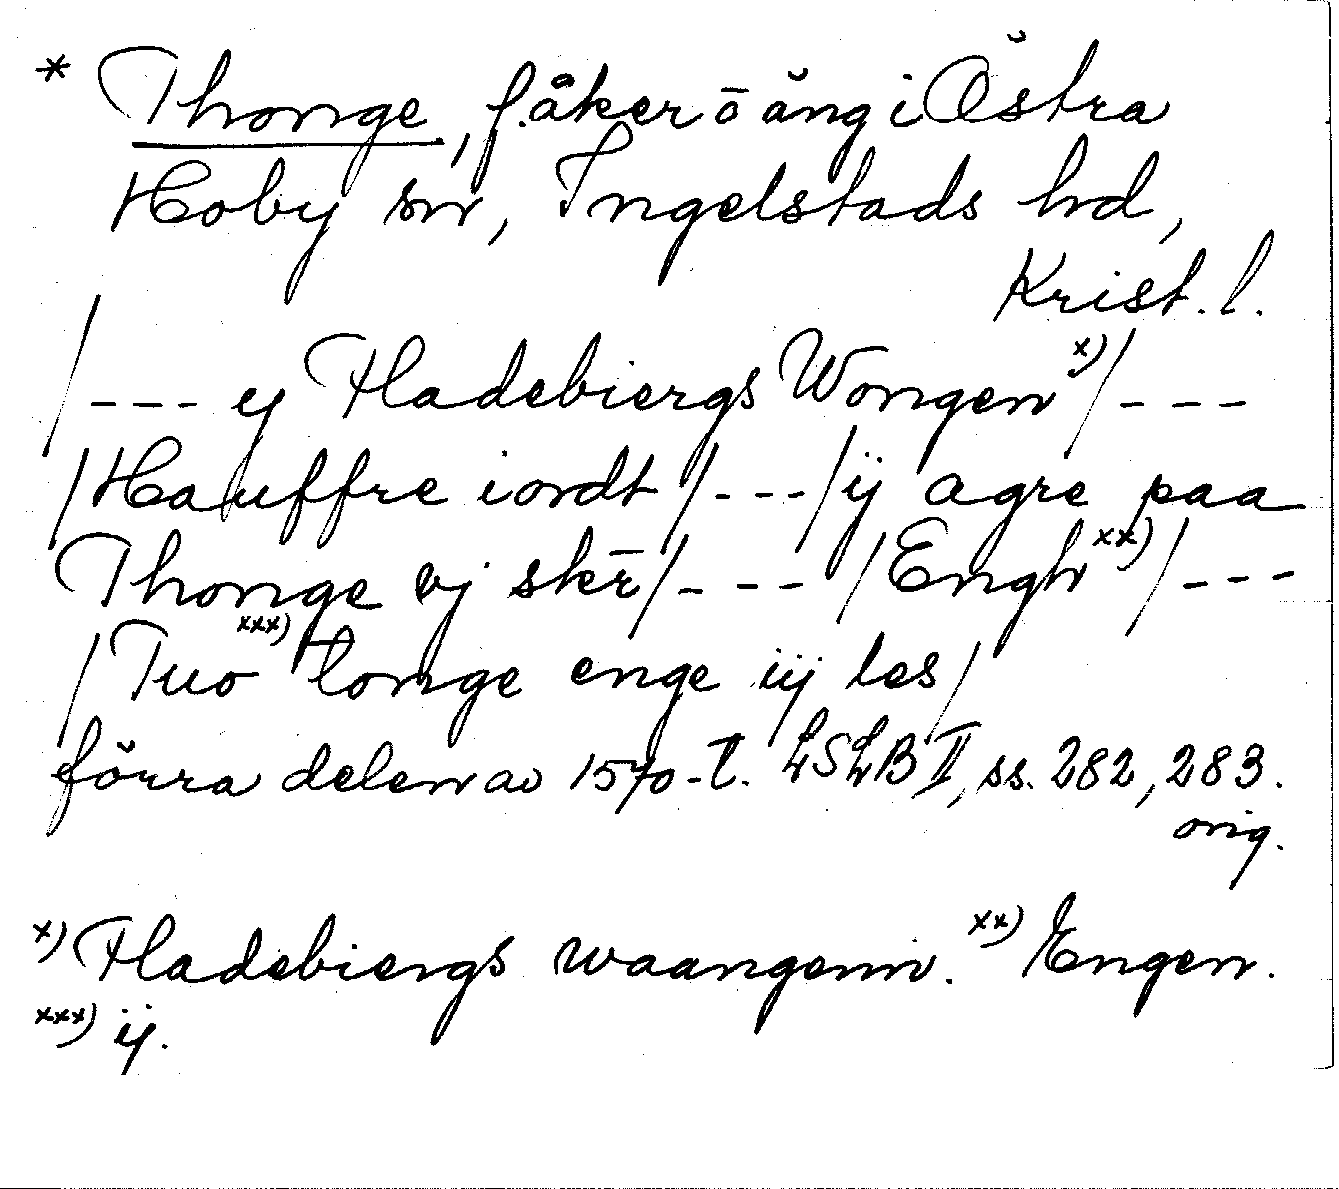 * Thonge, f. åker ō äng i Östra
Hoby sn, Ingelstads hd,
Krist. l.
/--- ej Fladebiergs Wongen x)/---
/Hauffre iordt/---/ij agre paa
Thonge vj skr̄/---/Engh xx)/---
/Tuo xxx) longe enge iij les/
förra delen av 1570-t. LSLB II, ss. 282, 283.
orig.
x) Fladebiergs waangenn. xx) Engen.
xxx) ij.